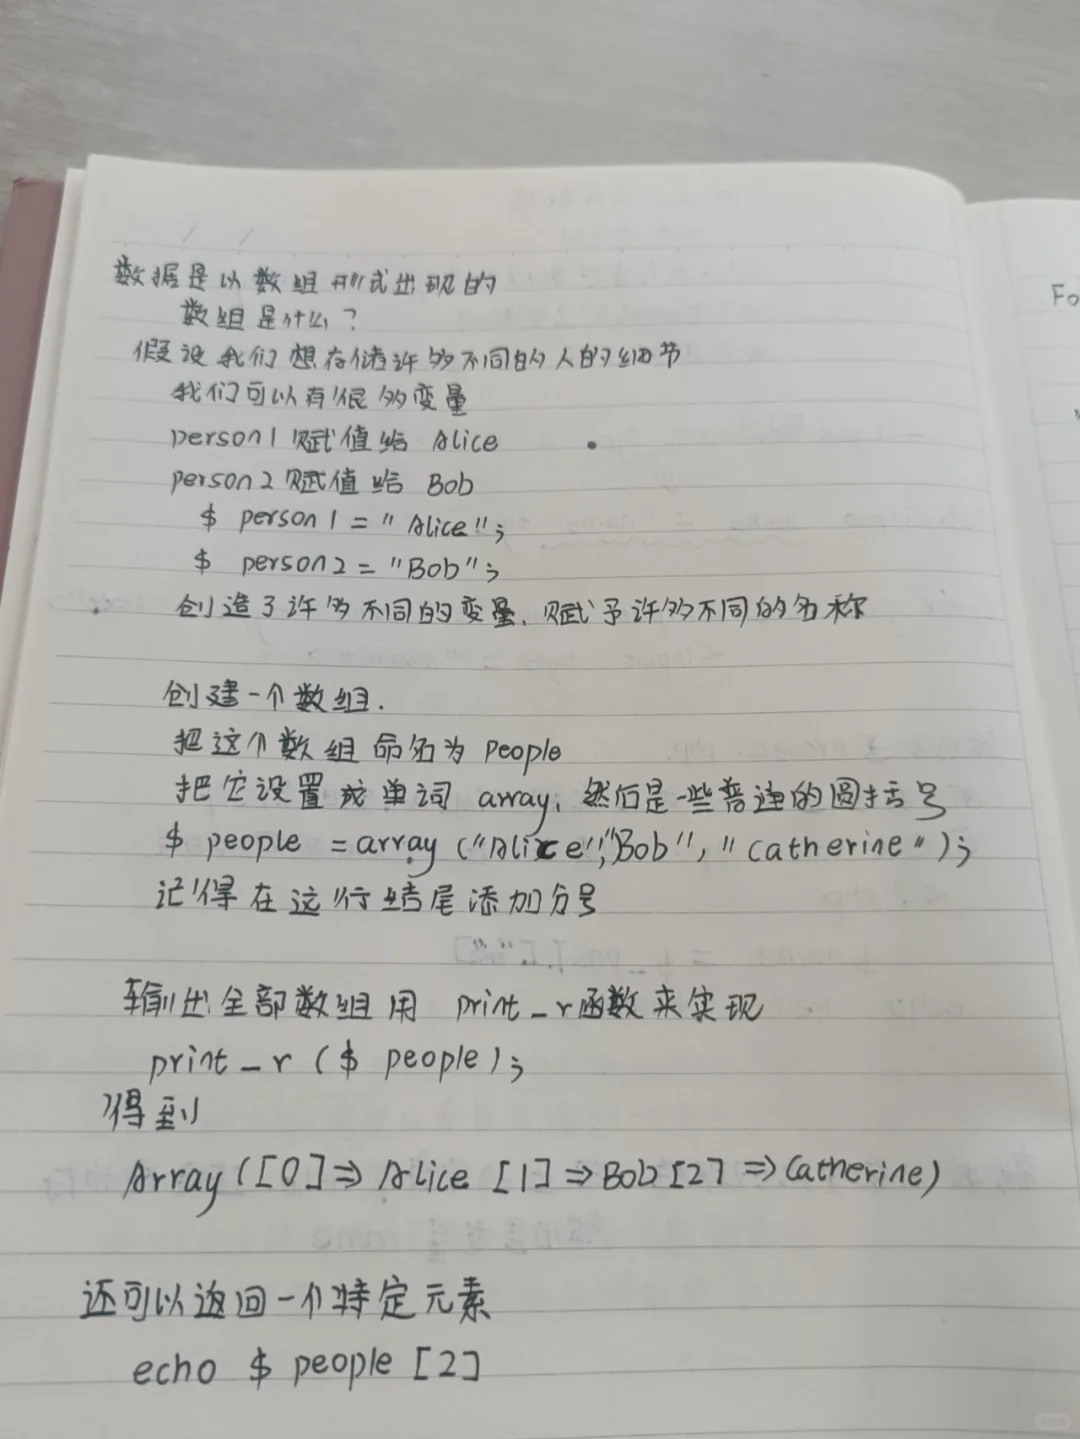 数据是以数组形式出现的
数组是什么?
假设我们想存储许多不同的人的细节
我们可以有很多变量
person1 赋值给 Alice
person2 赋值给 Bob
$ person1 = "Alice";
$ person2 = "Bob";
创造了许多不同的变量,赋予许多不同的名称
创建一个数组.
把这个数组命名为 people
把它设置成单词 array, 然后是一些普通的圆括号
$ people = array ("Alice","Bob", "Catherine");
记得在这行结尾添加分号
输出全部数组用 print_r函数来实现
print_r ($ people);
得到
Array ([0]⇒Alice [1]⇒Bob [2]⇒Catherine)
还可以返回一个特定元素
echo $ people [2]
Fo